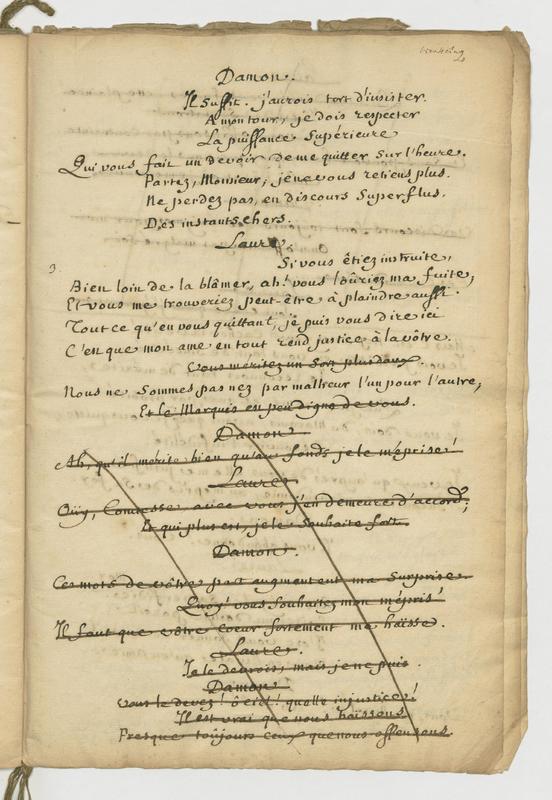 Damon.
Il suffit. j'aurois tort d'insister.
A mon tour, je dois respecter
La puissance Supérieure
Qui vous fait un devoir de me quitter sur l'heure.
Partez, Monsieur, je ne vous retiens plus.
Ne perdez pas, en discours Superflus.
Des instants chers.
Laure.
Si vous êtiez instruite,
3.
Bien loin de la blâmer, ah! vous loüriez ma fuite;
Et vous me trouveriez peut-être à plaindre aussi.
Tout ce qu'en vous quittant, je puis vous dire ici
C'est que mon ame en tout rend justice à la vôtre.
Vous méritez un Sort plus doux.
Nous ne Sommes pas nez par malheur l'un pour l'autre,
Et le Marquis est peu digne de vous.
Damon
Ah, qu'il mérite bien qu'au fonds je le méprise!
Laure
Oüy, Comtesse avec vous j'en demeure d'accord;
Et qui plus est, je le Souhaite fort.
Damon.
Ces mots de vôtre part augmentent ma Surprise.
Quoy! vous Souhaitez mon mépris!
Il faut que vôtre Coeur fortement me haïsse.
Laure.
Je le devrois, mais je ne puis.
Damon
Vous le devez! ô ciel! quelle injustice!
Il est vrai que nous haïssons
Presque toûjours ceux que nous offensons.